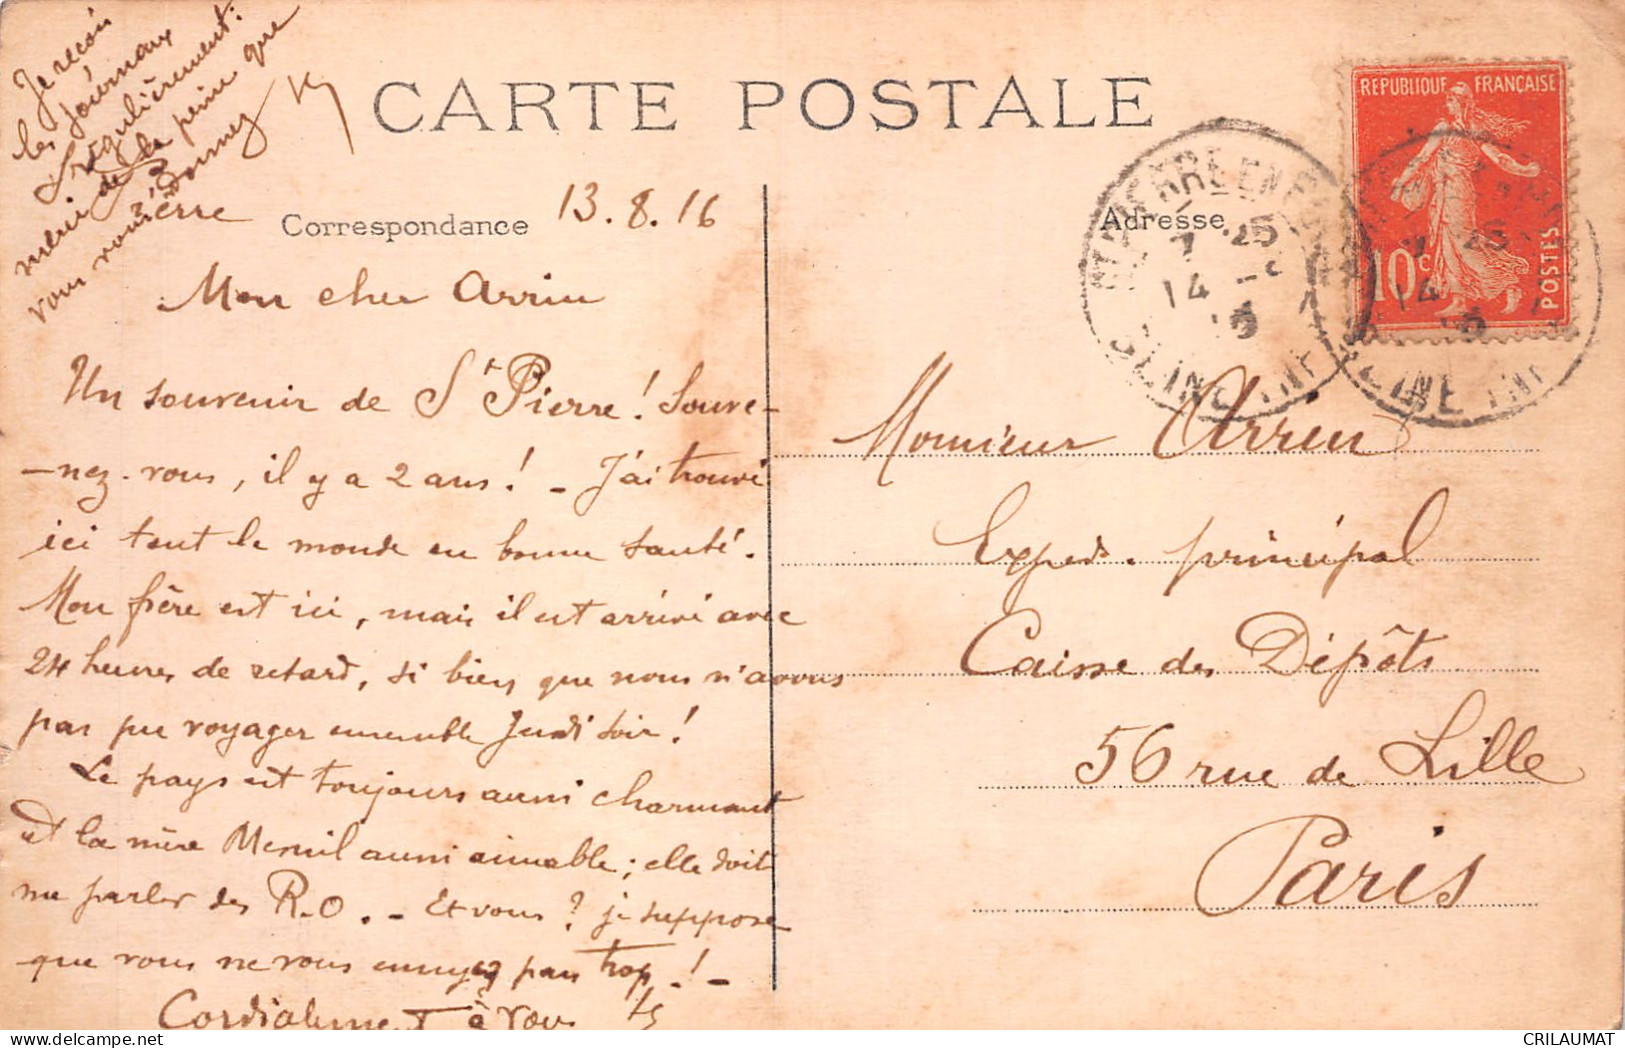 Je reçois
les journaux
régulièrement.
merci de la peine que
vous vous donnez
Pierre
CARTE POSTALE
Correspondance
13.8.16
Adresse
REPUBLIQUE FRANÇAISE
10c
POSTES
14
SEINE INF
Mon cher Arrieu
Un souvenir de St Pierre ! Souve-
-nez-vous, il y a 2 ans ! - J'ai trouvé
ici tout le monde en bonne santé.
Mon frère est ici, mais il est arrivé avec
24 heures de retard, si bien que nous n'avons
pas pu voyager ensemble Jeudi soir !
Le pays est toujours aussi charmant
et la mère Mesnil aussi aimable ; elle doit
me parler des R.O. - Et vous ? je suppose
que vous ne vous ennuyez pas trop ! -
Cordialement à vous
Monsieur Arrieu
Exped. principal
Caisse des Dépôts
56 rue de Lille
Paris
CRILAUMAT